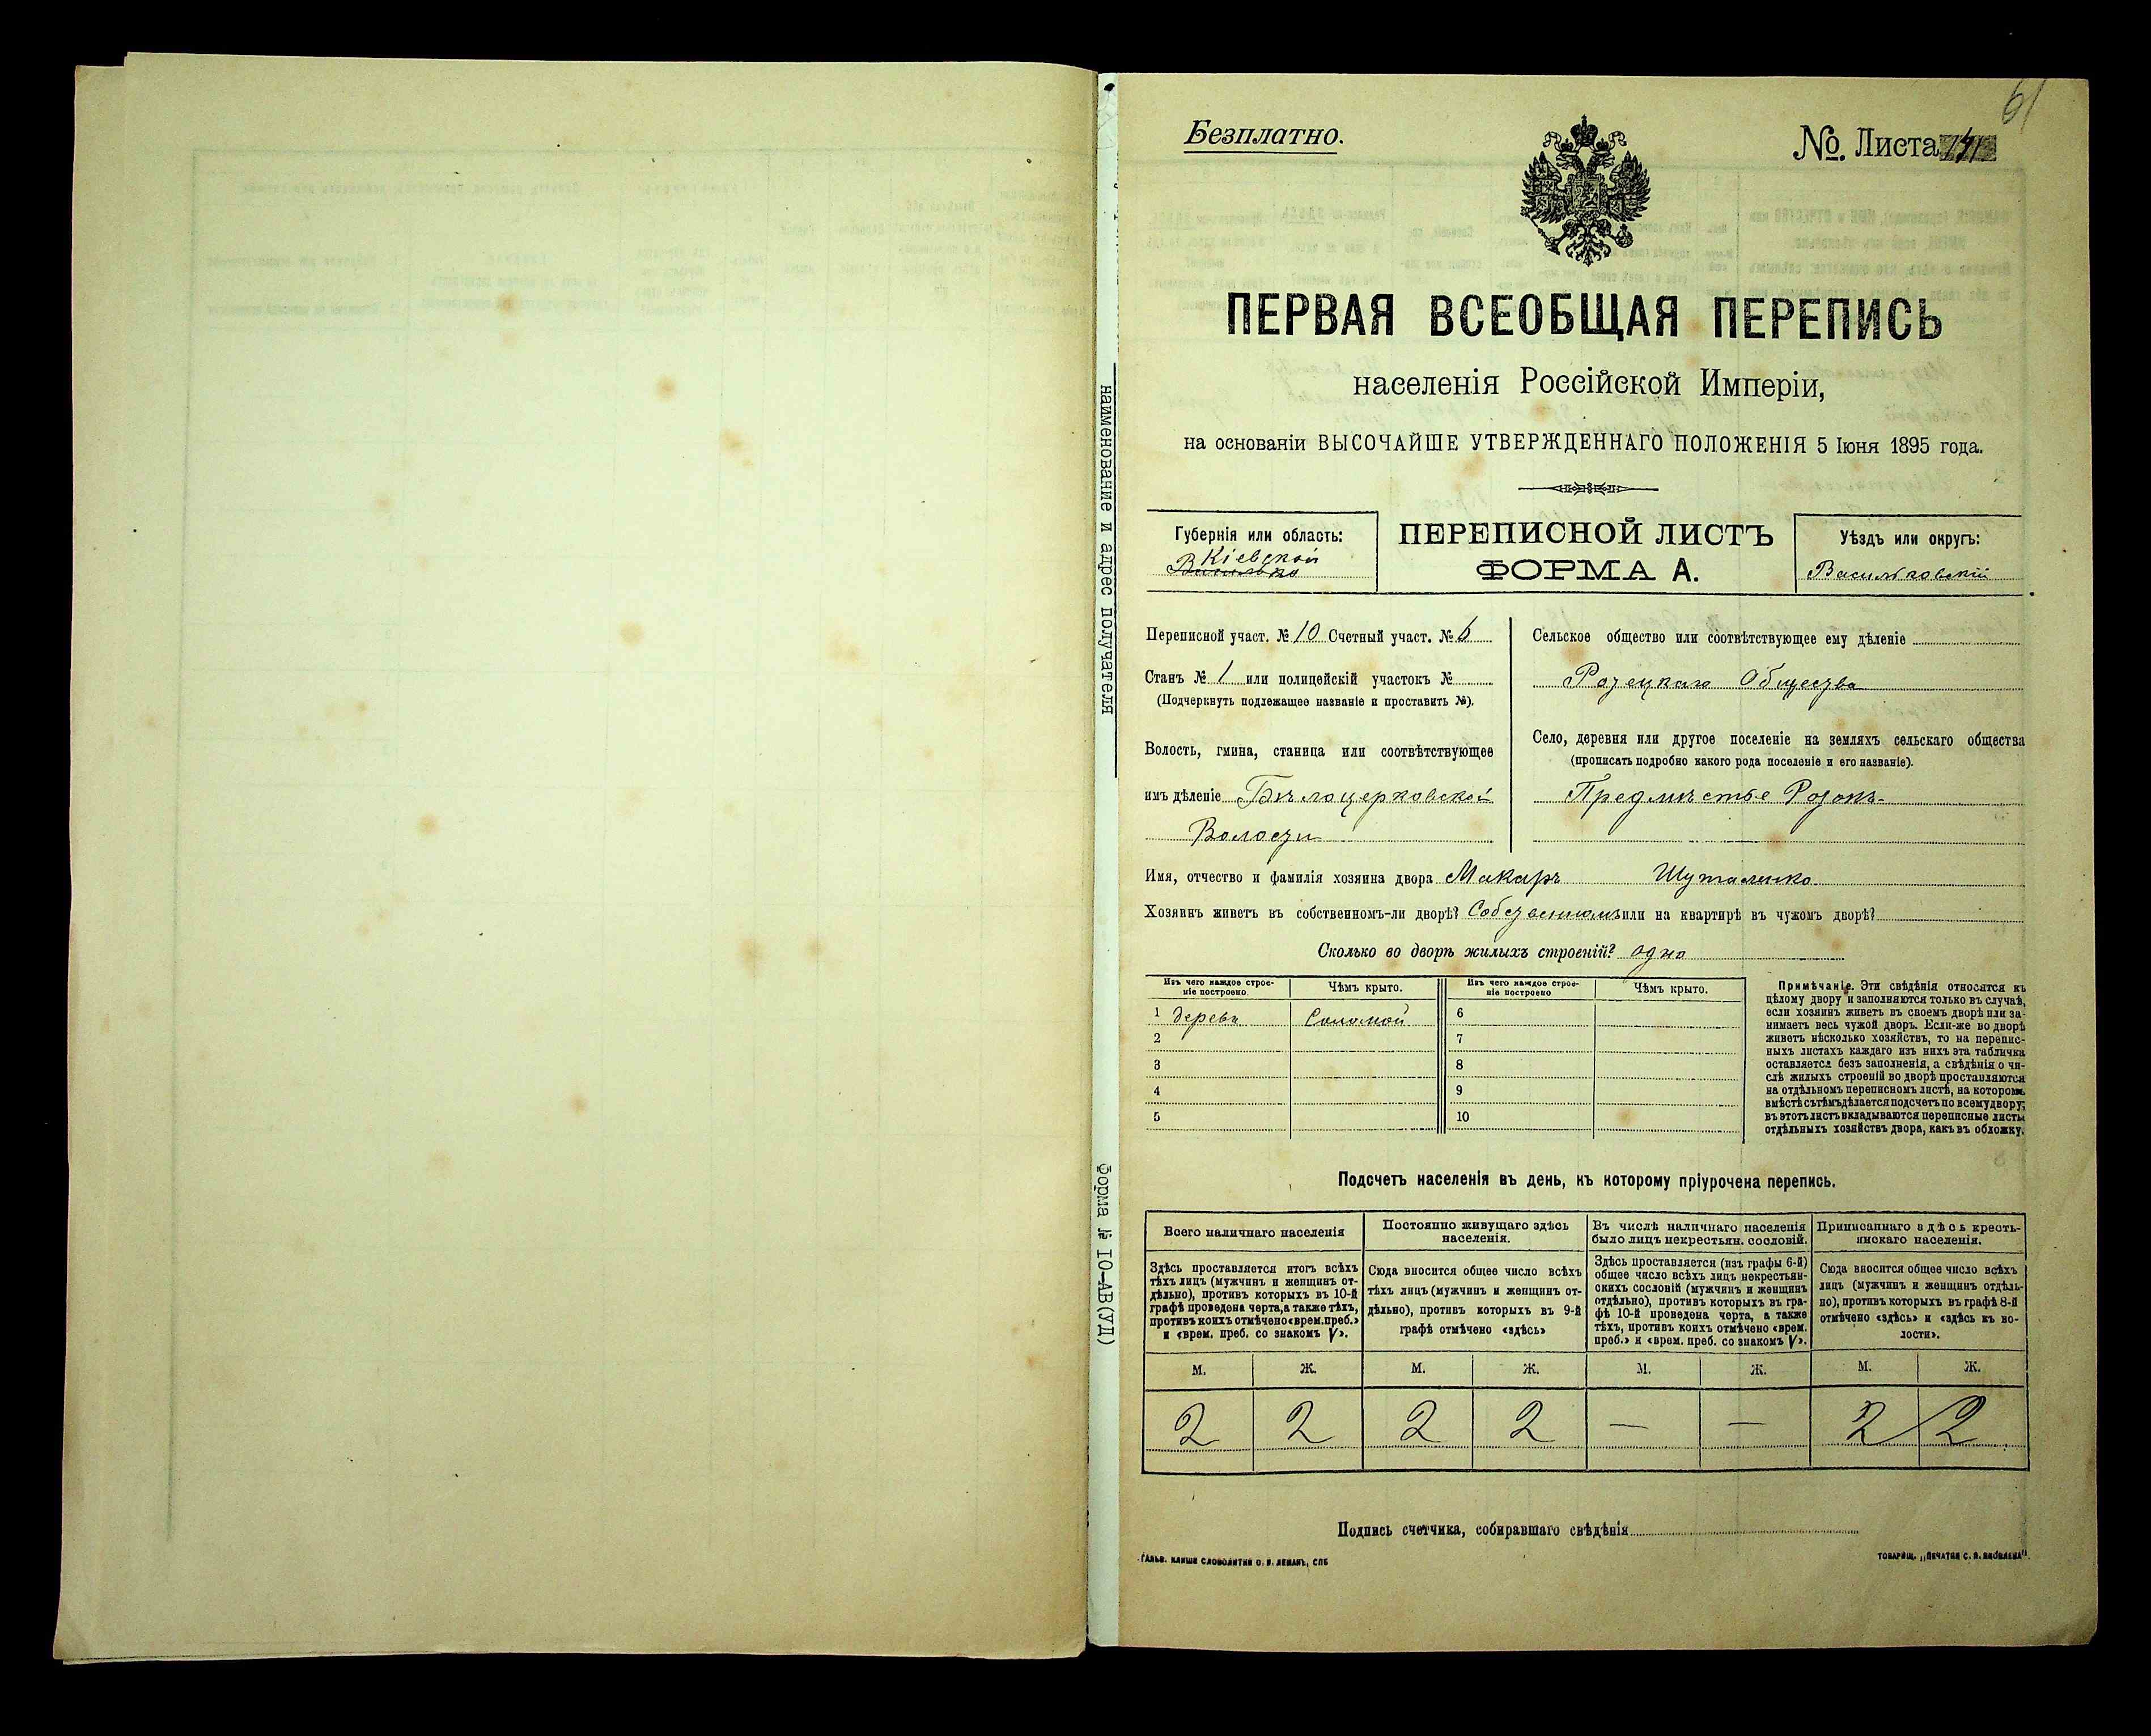 61
Безплатно.
№ Листа
ПЕРВАЯ ВСЕОБЩАЯ ПЕРЕПИСЬ
населенія Россійской Имперіи,
на основаніи ВЫСОЧАЙШЕ УТВЕРЖДЕННАГО ПОЛОЖЕНІЯ 5 Іюня 1895 года.
Губернія или область:
Кіевской
ПЕРЕПИСНОЙ ЛИСТЪ
ФОРМА А.
Уѣздъ или округъ:
Васильковскій
Переписной участ. № 10 Счетный участ. № 6
Станъ № 1 или полицейскій участокъ №
(Подчеркнуть подлежащее названіе и проставить №).
Волость, гмина, станица или соотвѣтствующее
имъ дѣленіе Бѣлоцерковской
Волости
Сельское общество или соотвѣтствующее ему дѣленіе
Ротецкаго Общества
Село, деревня или другое поселеніе на земляхъ сельскаго общества
(прописать подробно какого рода поселеніе и его названіе).
Предмѣстье Ротокъ
Имя, отчество и фамилія хозяина двора Макаръ Шуталенко
Хозяинъ живетъ въ собственномъ-ли дворѣ? Собственномъ или на квартирѣ въ чужомъ дворѣ?
Сколько во дворѣ жилыхъ строеній? одно
Изъ чего каждое строе-
ніе построено
Чѣмъ крыто.
Изъ чего каждое строе-
ніе построено
Чѣмъ крыто.
1 дерева Соломой 6
2 7
3 8
4 9
5 10
Примѣчаніе. Эти свѣдѣнія относятся къ
цѣлому двору и заполняются только въ случаѣ,
если хозяинъ живетъ въ своемъ дворѣ или за-
нимаетъ весь чужой дворъ. Если-же во дворѣ
живетъ нѣсколько хозяйствъ, то на перепис-
ныхъ листахъ каждаго изъ нихъ эта табличка
оставляется безъ заполненія, а свѣдѣнія о чи-
слѣ жилыхъ строеній во дворѣ проставляются
на отдѣльномъ переписномъ листѣ, на которомъ
вмѣстѣ съ тѣмъ дѣлается подсчетъ по всему двору;
въ этотъ листъ вкладываются переписные листы
отдѣльныхъ хозяйствъ двора, какъ въ обложку.
Подсчетъ населенія въ день, къ которому пріурочена перепись.
Всего наличнаго населенія
Здѣсь проставляется итогъ всѣхъ
тѣхъ лицъ (мужчинъ и женщинъ от-
дѣльно), противъ которыхъ въ 10-й
графѣ проведена черта, а также тѣхъ,
противъ коихъ отмѣчено «врем. преб.»
и «врем. преб. со знакомъ V».
Постоянно живущаго здѣсь
населенія.
Сюда вносится общее число всѣхъ
тѣхъ лицъ (мужчинъ и женщинъ от-
дѣльно), противъ которыхъ въ 9-й
графѣ отмѣчено «здѣсь»
Въ числѣ наличнаго населенія
было лицъ некрестьян. сословій.
Здѣсь проставляется (изъ графы 6-й)
общее число всѣхъ лицъ некрестьян-
скихъ сословій (мужчинъ и женщинъ
отдѣльно), противъ которыхъ въ гра-
фѣ 10-й проведена черта, а также
тѣхъ, противъ коихъ отмѣчено «врем.
преб.» и «врем. преб. со знакомъ V».
Приписаннаго здѣсь кресть-
янскаго населенія.
Сюда вносится общее число всѣхъ
лицъ (мужчинъ и женщинъ отдѣль-
но), противъ которыхъ въ графѣ 8-й
отмѣчено «здѣсь» и «здѣсь къ во-
лости».
М. Ж. М. Ж. М. Ж. М. Ж.
2 2 2 2 — — 2 2
Подпись счетчика, собиравшаго свѣдѣнія
ГАЛЬВ. КЛИШЕ СЛОВОЛИТНИ О. И. ЛЕМАНЪ, СПБ
ТОВАРИЩ. „ПЕЧАТНЯ С. П. ЯКОВЛЕВА".
наименование и адрес получателя
Форма № 10-АВ(УД)